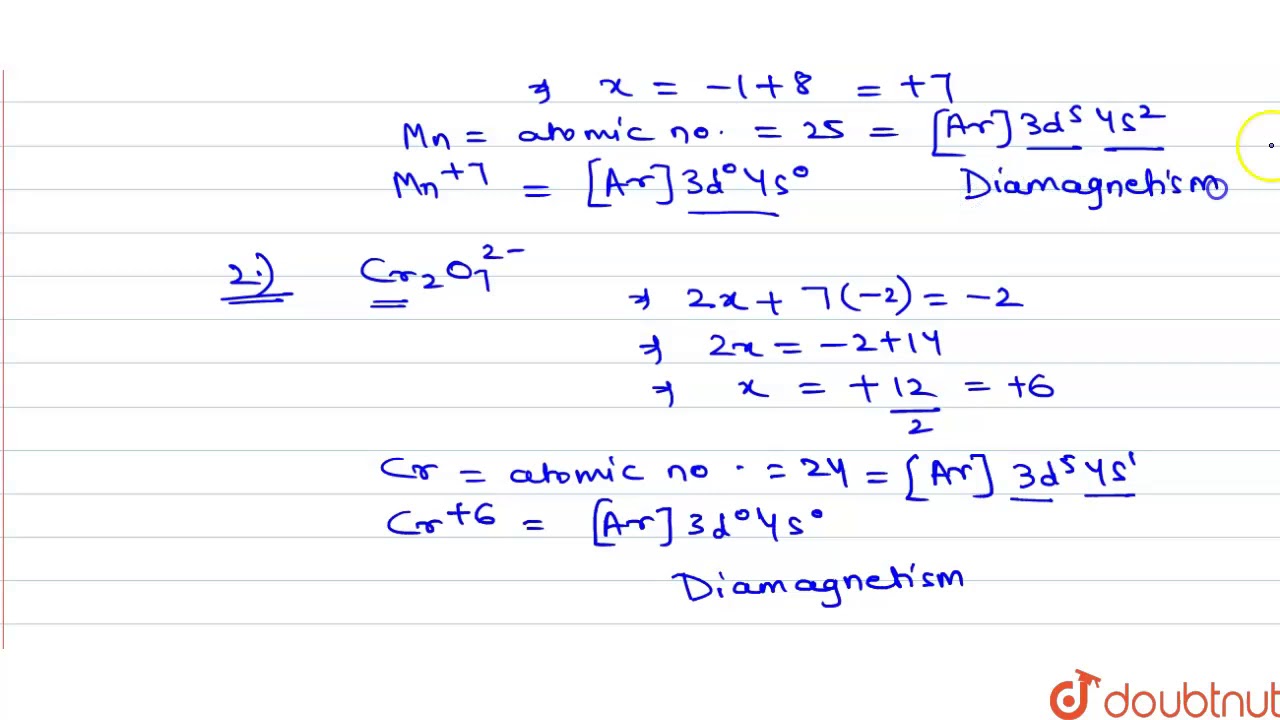 ⇒ x = -1+8 = +7
Mn = atomic no. = 25 = [Ar] 3d⁵ 4s²
Mn⁺⁷ = [Ar] 3d⁰4s⁰ Diamagnetism
2.) Cr₂O₇²⁻
⇒ 2x + 7(-2) = -2
⇒ 2x = -2+14
⇒ x = +12/2 = +6
Cr = atomic no. = 24 = [Ar] 3d⁵ 4s¹
Cr⁺⁶ = [Ar] 3d⁰4s⁰
Diamagnetism
doubtnut